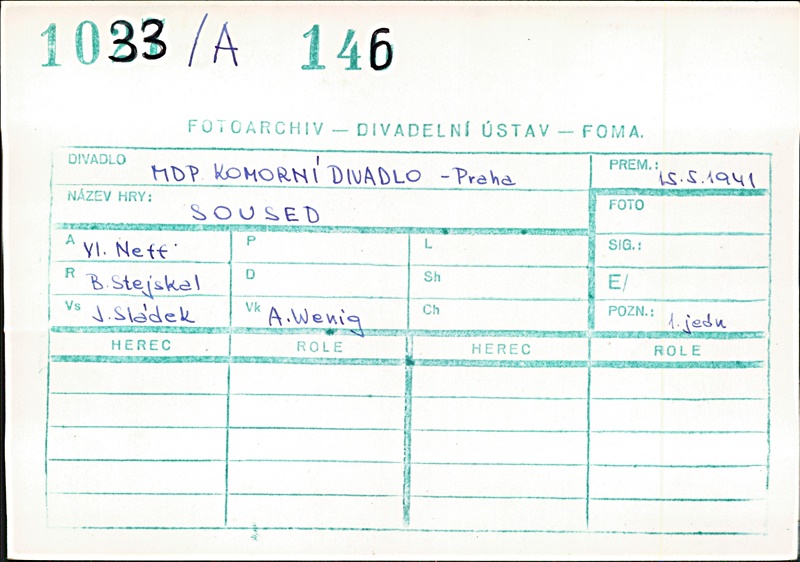 1033/A 146
FOTOARCHIV — DIVADELNÍ ÚSTAV — FOMA.
DIVADLO MDP. KOMORNÍ DIVADLO - Praha
PREM.: 15.5.1941
NÁZEV HRY: SOUSED
FOTO
A Vl. Neff P L
SIG.:
R B. Stejskal D Sh
E/
Vs J. Sládek Vk A. Wenig Ch
POZN.: 1. jedn
HEREC ROLE HEREC ROLE